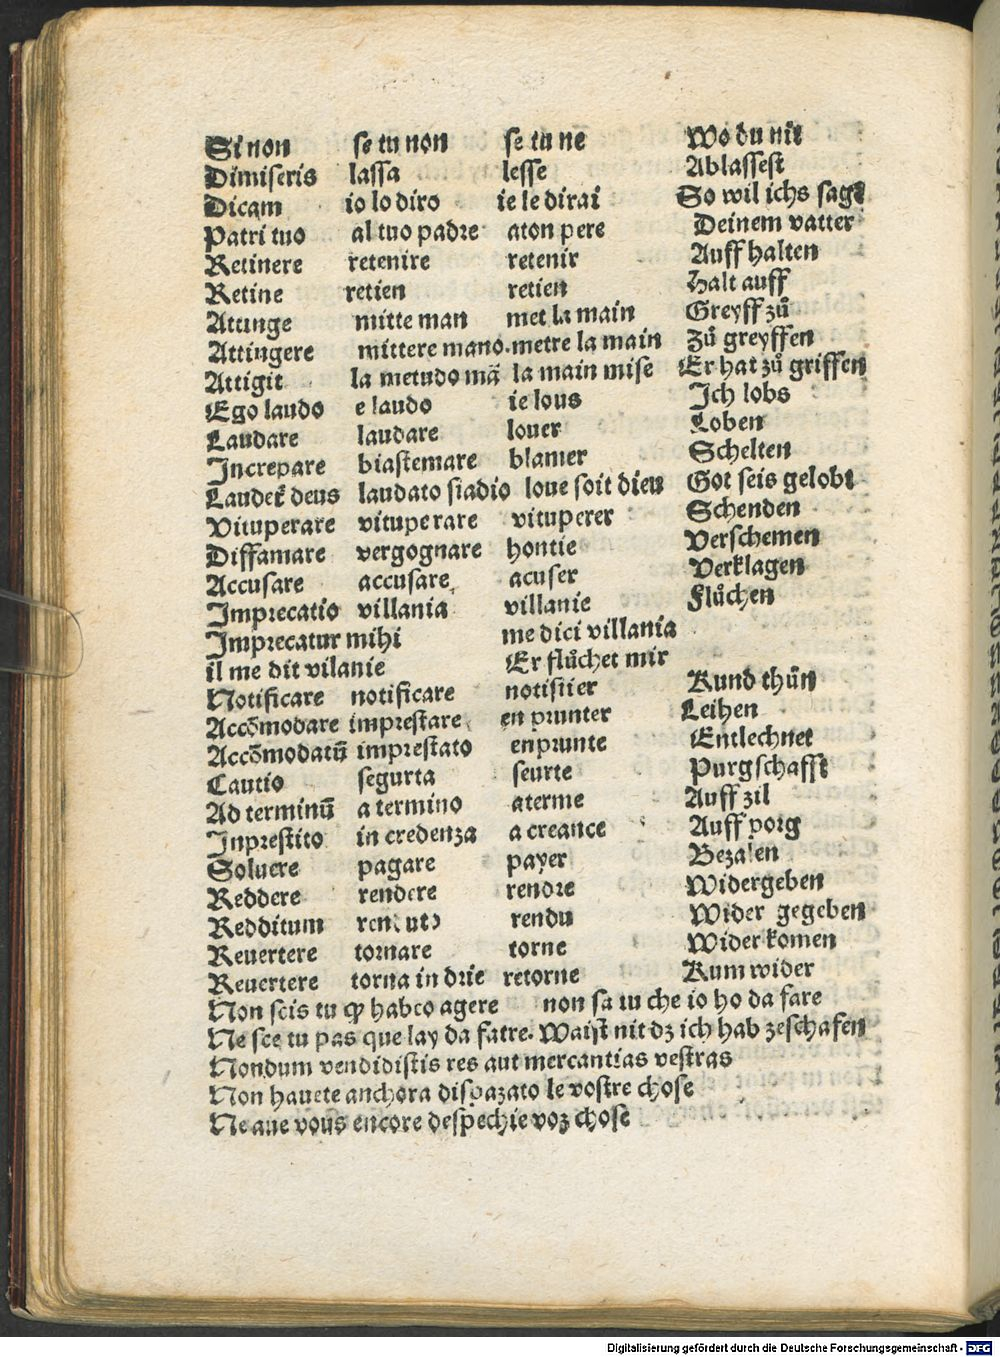 Si non se tu non se tu ne Wo du nit
Dimiseris lassa lesse Ablassest
Dicam io lo diro ie le dirai So wil ichs sagē
Patri tuo al tuo padre aton pere Deinem vatter
Retinere retenire retenir Auff halten
Retine retien retien Halt auff
Attinge mitte man met la main Greyff zů
Attingere mittere mano. metre la main Zů greyffen
Attigit la metudo mā la main mise Er hat zů griffen
Ego laudo e laudo ie lous Ich lobs
Laudare laudare louer Loben
Increpare biastemare blamer Schelten
Laudet̄ deus laudato siadio loue soit dieu Got seis gelobt
Vituperare vituperare vituperer Schenden
Diffamare vergognare hontie Verschemen
Accusare accusare acuser Verklagen
Imprecatio villania villanie Flůchen
Imprecatur mihi me dici villania
il me dit vilanie Er flůchet mir
Notificare notificare notifiier Kund thůn
Accōmodare imprestare en prunter Leihen
Accōmodatū imprestato enprunte Entlechnet
Cautio segurta seurte Purgschafft
Ad terminū a termino aterme Auff zil
Inprestito in credenza a creance Auff porg
Soluere pagare payer Bezalen
Reddere rendere rendre Widergeben
Redditum renduto rendu Wider gegeben
Reuertere tornare torne Wider komen
Reuertere torna in drie retorne Kum wider
Non scis tu ꝙ habeo agere non sa tu che io ho da fare
Ne sce tu pas que lay da fatre. Waist nit dz ich hab zeschafen
Nondum vendidistis res aut mercantias vestras
Non hauete anchora dispazato le vostre chose
Ne aue vous encore despechie voz chose
Digitalisierung gefördert durch die Deutsche Forschungsgemeinschaft - DFG